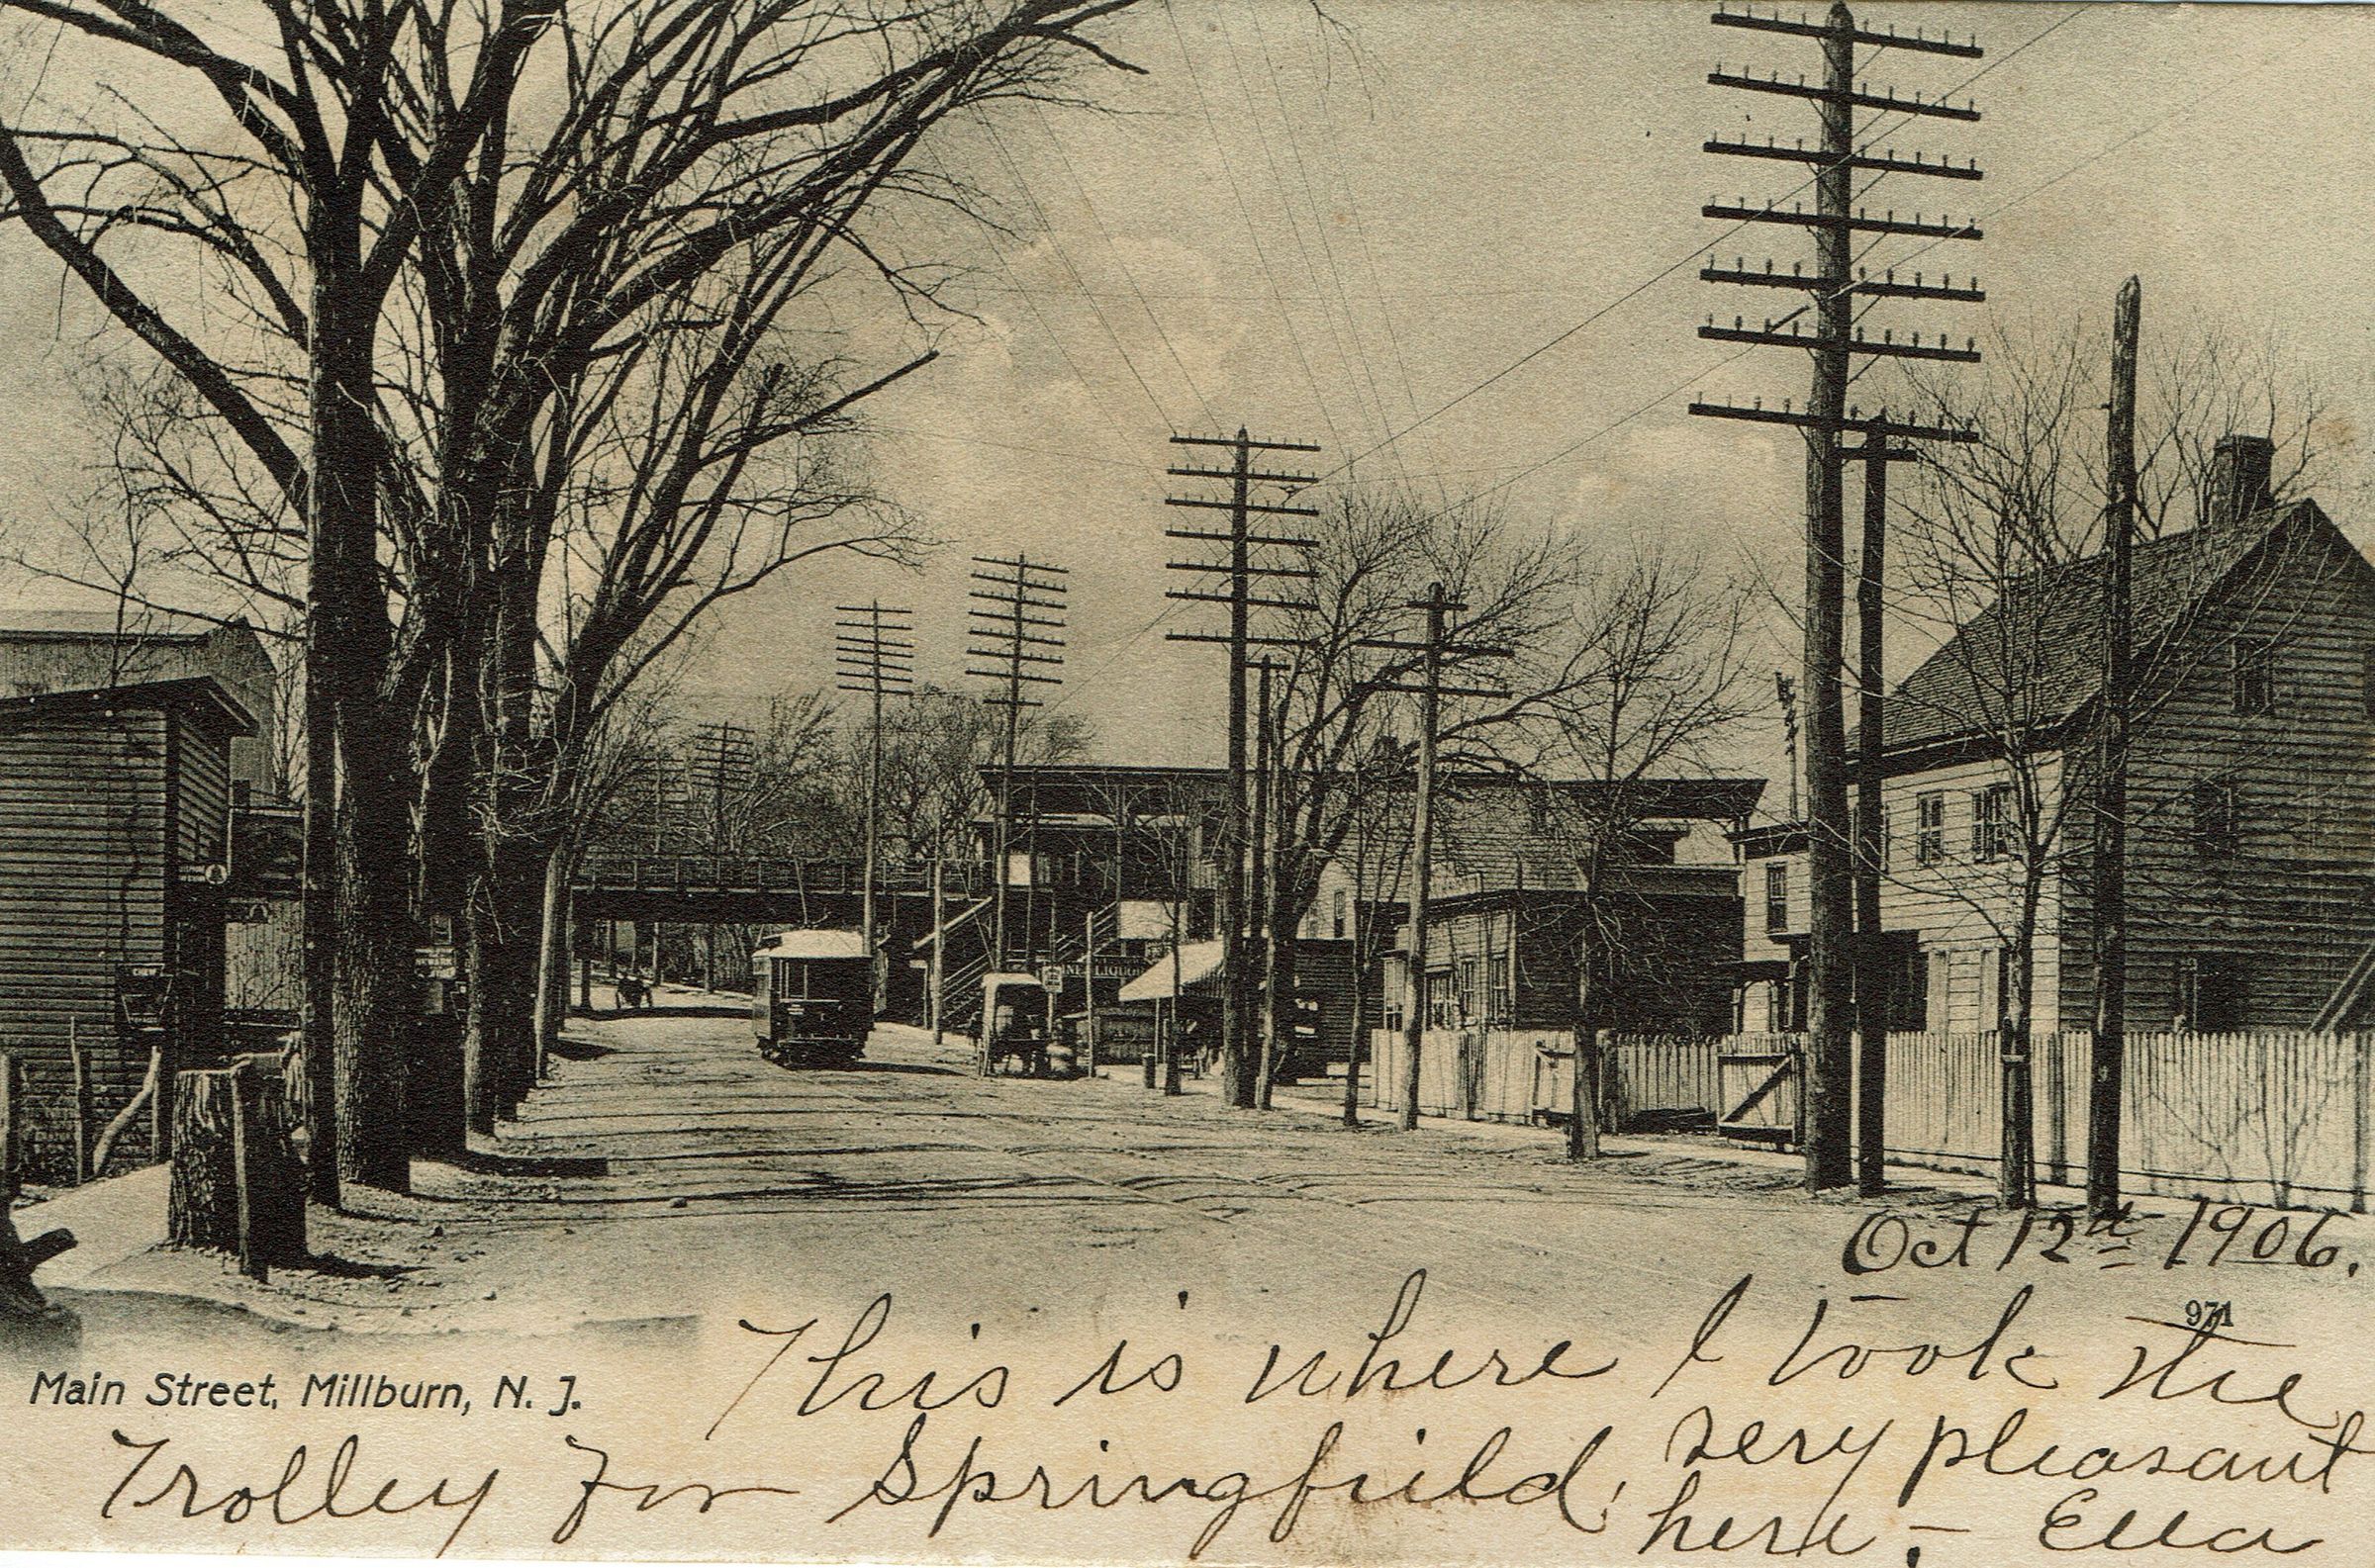 CHEW
LIQUO
Oct 12d 1906.
971
This is where I took the
Main Street, Millburn, N. J.
Trolley for Springfield, very pleasant
here, – Ella